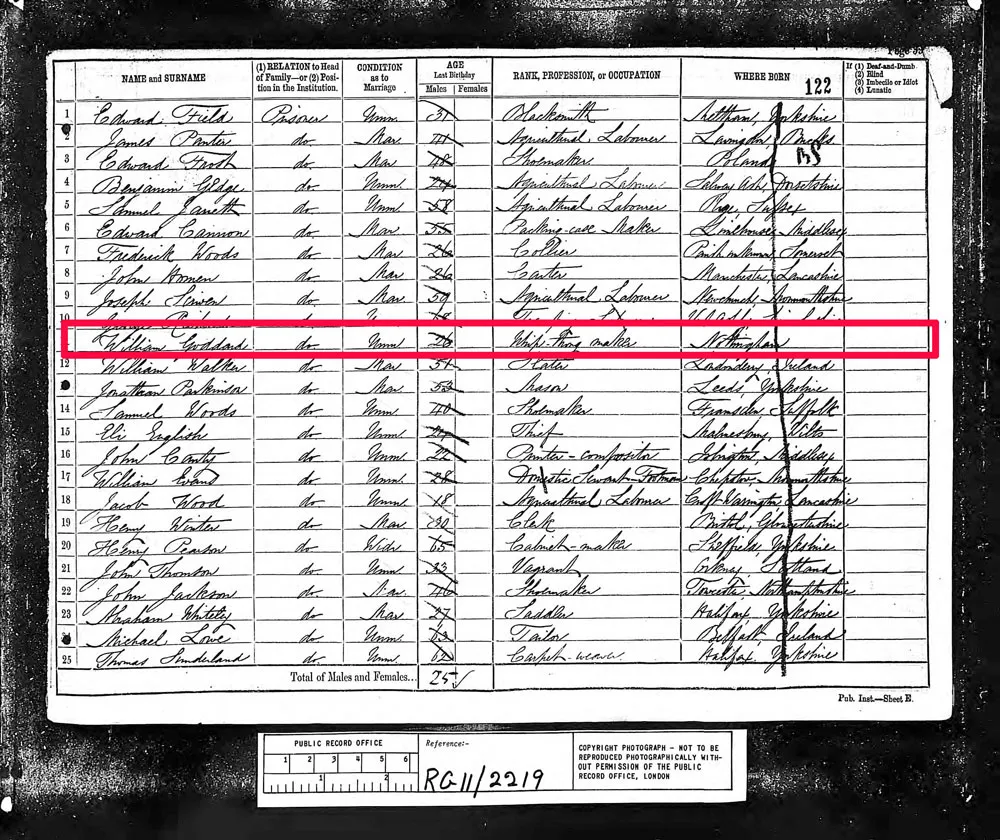 Page 53
NAME and SURNAME (1) RELATION to Head of Family—or (2) Position in the Institution. CONDITION as to Marriage AGE Last Birthday Males Females RANK, PROFESSION, or OCCUPATION WHERE BORN 122 If (1) Deaf-and-Dumb (2) Blind (3) Imbecile or Idiot (4) Lunatic
1 Edward Field Prisoner Unm. 31 Blacksmith Yorkshire
2 James Panter do Mar 41 Agricultural Labourer Lavingdon, Bucks
3 Edward Frost do Mar 48 Shoemaker Poland BS
4 Benjamin Gidge do Unm. 24 Agricultural Labourer Salway Ash, Dorsetshire
5 Samuel Jarrett do Unm 58 Agricultural Labourer Rye, Sussex
6 Edward Cannon do Mar 55 Packing-case Maker Limehouse, Middlesex
7 Frederick Woods do Mar 26 Collier Parish unknown, Somerset
8 John Homen do Mar 26 Carter Manchester, Lancashire
9 Joseph do Mar 59 Agricultural Labourer Newchurch Monmouthshire
10 George
William Goddard do Unm 26 Whip-thong maker Nottingham
12 William Walker do Mar 51 Slater Londonderry, Ireland
Jonathan Parkinson do Mar 53 Mason Leeds, Yorkshire
14 Samuel Woods do Unm. 40 Shoemaker Framsden, Suffolk
15 Eli English do Unm. Thief Malmesbury, Wilts
16 John Canty do Unm. 22 Printer-compositor Islington, Middlesex
17 William Evans do Unm. 28 Domestic Servant-Footman Chepstow, Monmouthshire
18 Jacob Wood do Unm. 18 Agricultural Labourer Croft-Warrington, Lancashire
19 Henry Winter do Mar 30 Clerk Bristol, Gloucestershire
20 Henry Pearson do Widr 65 Cabinet-maker Sheffield, Yorkshire
21 John Thomson do Unm. 33 Vagrant Orkney, Scotland
22 John Jackson do Mar. 46 Shoemaker Towcester, Northamptonshire
23 Abraham Whiteley do Mar 27 Saddler Halifax, Yorkshire
Michael Lowe do Unm. 63 Tailor Belfast, Ireland
25 Thomas Sunderland do Unm. 62 Carpet-weaver. Halifax, Yorkshire
Total of Males and Females... 25
Pub. Inst.—Sheet E.
PUBLIC RECORD OFFICE
1 2 3 4 5 6
1 2
Reference:-
RG11/2219
COPYRIGHT PHOTOGRAPH - NOT TO BE
REPRODUCED PHOTOGRAPHICALLY WITH-
OUT PERMISSION OF THE PUBLIC
RECORD OFFICE, LONDON